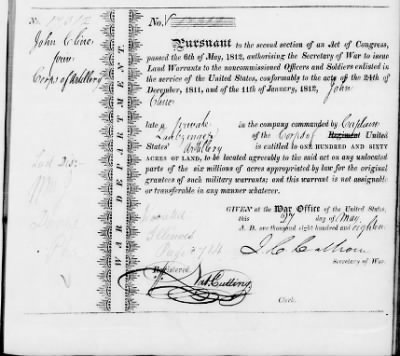 No.
John Cline
Corps of Artillery
WAR DEPARTMENT.
Pursuant to the second section of an Act of Congress,
passed the 6th of May, 1812, authorising the Secretary of War to issue
Land Warrants to the noncommissioned Officers and Soldiers enlisted in
the service of the United States, conformably to the acts of the 24th of
December, 1811, and of the 11th of January, 1812, John
Cline
late a private in the company commanded by Captain
of the Corps of Regiment United
States' Artillery is entitled to ONE HUNDRED AND SIXTY
ACRES OF LAND, to be located agreeably to the said act on any unlocated
part of the six millions of acres appropriated by law for the original
grantees of such military warrants; and this warrant is not assignable
or transferable in any manner whatever.
GIVEN at the War Office of the United States,
this 27 day of May
A. D. one thousand eight hundred and eighteen
Located
Illinois
Page
J. C. Calhoun
Secretary of War.
Registered
Nat. Cutting
Clerk.